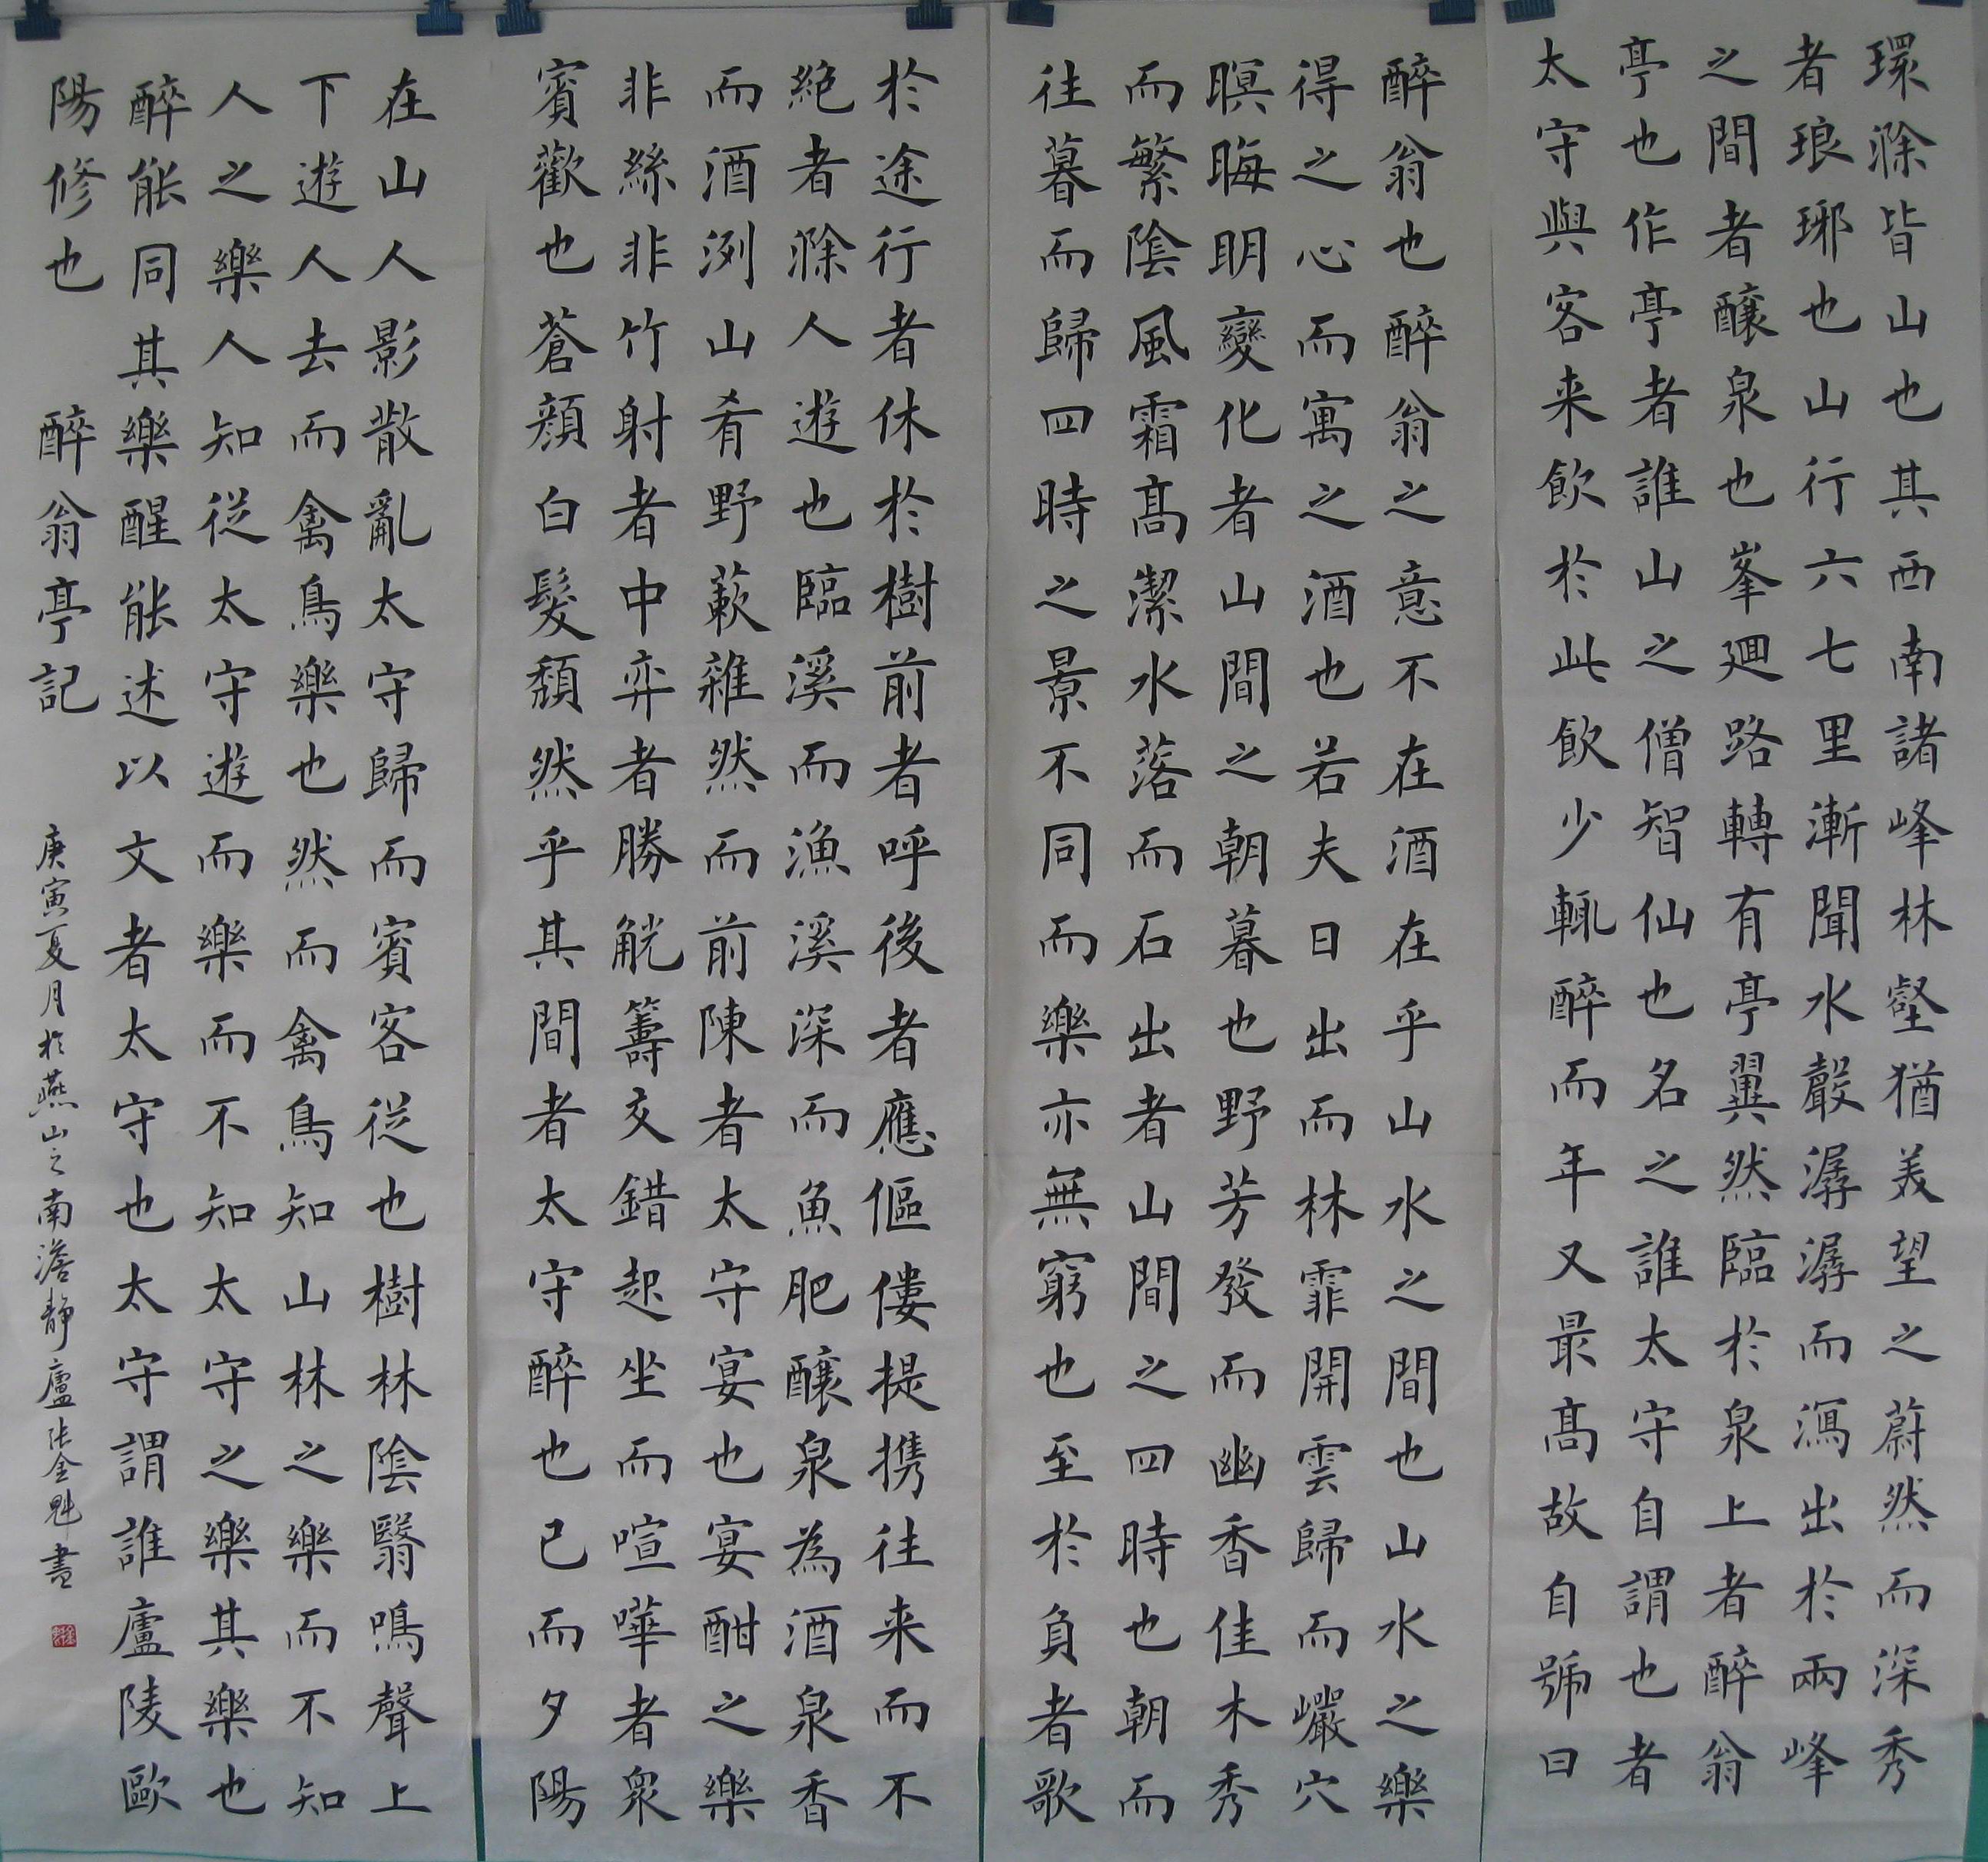 環滁皆山也其西南諸峰林壑猶美望之蔚然而深秀
者琅琊也山行六七里漸聞水聲潺潺而瀉出於兩峰
之間者釀泉也峯廻路轉有亭翼然臨於泉上者醉翁
亭也作亭者誰山之僧智仙也名之誰太守自謂也者
太守與客来飲於此飲少輒醉而年又最高故自號曰
醉翁也醉翁之意不在酒在乎山水之間也山水之樂
得之心而寓之酒也若夫日出而林霏開雲歸而巖穴
暝晦明變化者山間之朝暮也野芳發而幽香佳木秀
而繁陰風霜高潔水落而石出者山間之四時也朝而
往暮而歸四時之景不同而樂亦無窮也至於負者歌
於途行者休於樹前者呼後者應傴僂提携往来而不
絶者滁人遊也臨溪而漁溪深而魚肥釀泉為酒泉香
而酒洌山肴野蔌雜然而前陳者太守宴也宴酣之樂
非絲非竹射者中弈者勝觥籌交錯起坐而喧嘩者衆
賓歡也蒼顔白髮頽然乎其間者太守醉也已而夕陽
在山人影散亂太守歸而賓客從也樹林陰翳鳴聲上
下遊人去而禽鳥樂也然而禽鳥知山林之樂而不知
人之樂人知從太守遊而樂而不知太守之樂其樂也
醉能同其樂醒能述以文者太守也太守謂誰廬陵歐
陽修也 醉翁亭記
庚寅夏月於燕山之南澹静廬張金魁書